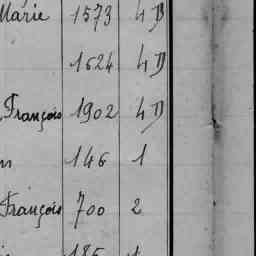 Marie 1573 4 D
1624 4 D
François 1902 4 D
146 1
François 700 2
186 1